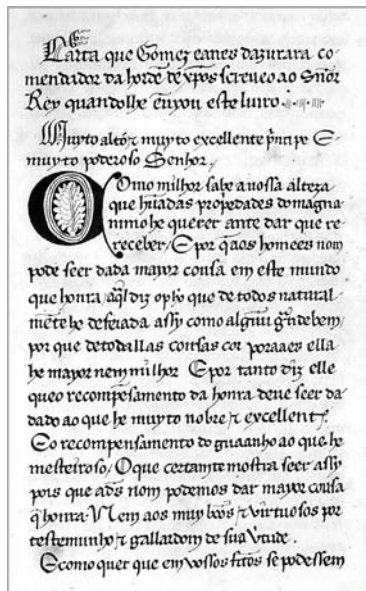 Carta que Gomez eanes dazurara co-
mendador da hordē de xp̄os screveo ao Sn̄or
Rey quando lhe enuyou este liuro.
Muyto alto ⁊ muyto excellente p̃ncipe E
muyto poderoso Senhor,
Como milhor sabe a uossa alteza
que hũa das propedades do magna-
nimo he querer ante dar que re-
receber / E por q̃ aos homeẽs nom
pode seer dada mayor cousa em este mundo
que honra / aq̃l diz o pho que de todos natural-
mẽte he deseiada assy como algũu gr̃nde bem /
por que de todallas cousas cor poraaes ella
he mayor nem milhor E por tanto diz elle
que o recompẽsamento da honra deue seer da-
dado ao que he muyto nobre ⁊ excellent
E o recompensamento do guaanho ao que he
mesteiroso / O que certamẽte mostra seer assy
pois que a ds̃ nom podemos dar mayor cousa
q̃ honra. Nem aos muy boõs ⁊ virtuosos por
testemunho ⁊ gallardom de sua v̾tude.
E como quer que em uossos fc̃tos se podessem